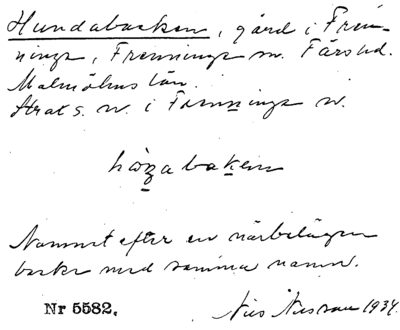 Hundabacken, gård i Fren-
ninge, Frenninge sn. Färs hd.
Malmöhus län.
Strax s. v. i Frenninge sn.
Namnet efter en närbelägen
backe med samma namn.
Nr 5582. Nils 1934.